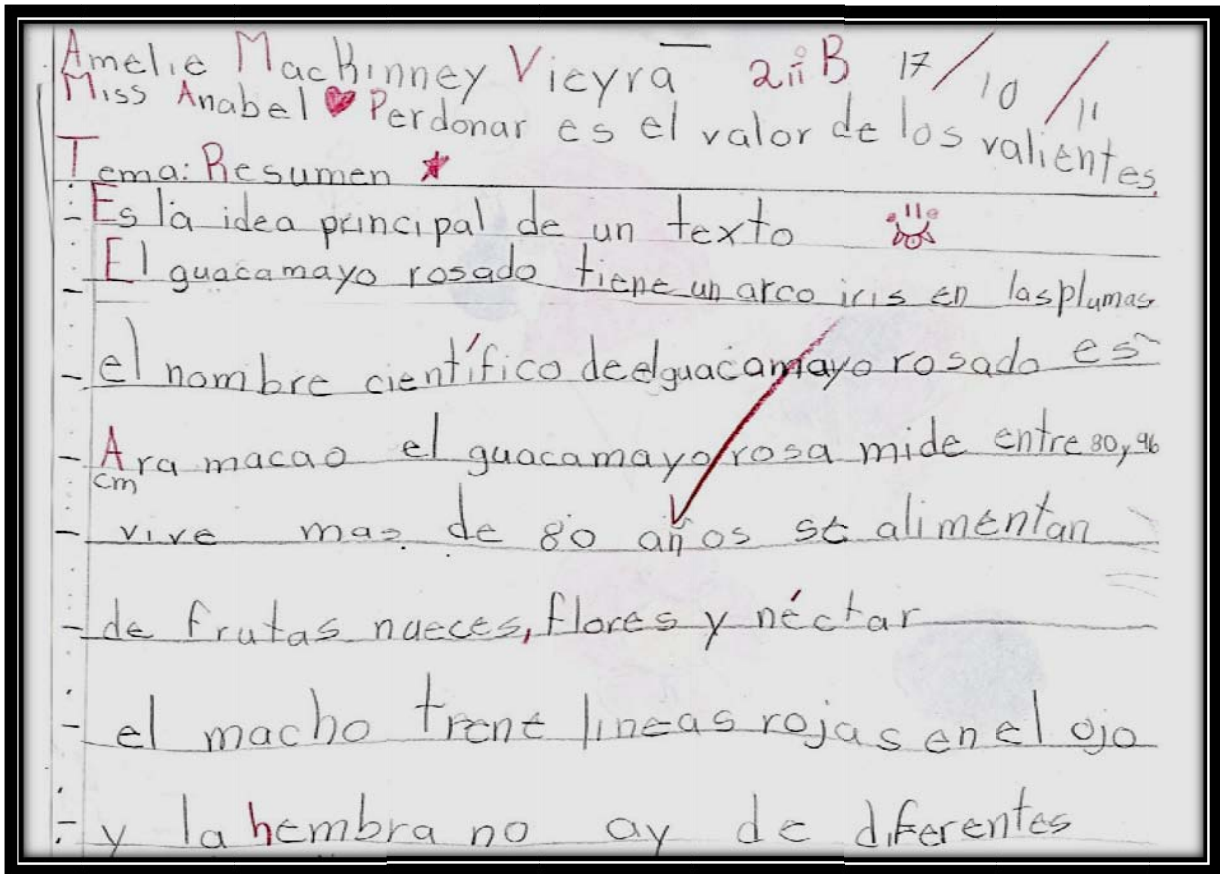 Amelie MacKinney Vieyra 2ii B 17/10/11
Miss Anabel Perdonar es el valor de los valientes.
Tema: Resumen
Es la idea principal de un texto
El guacamayo rosado tiene un arco iris en las plumas
el nombre científico de el guacamayo rosado es
Ara macao el guacamayo rosa mide entre 80 y 96
cm
vive mas de 80 años se alimentan
de frutas nueces, flores y néctar
el macho tiene lineas rojas en el ojo
y la hembra no ay de diferentes